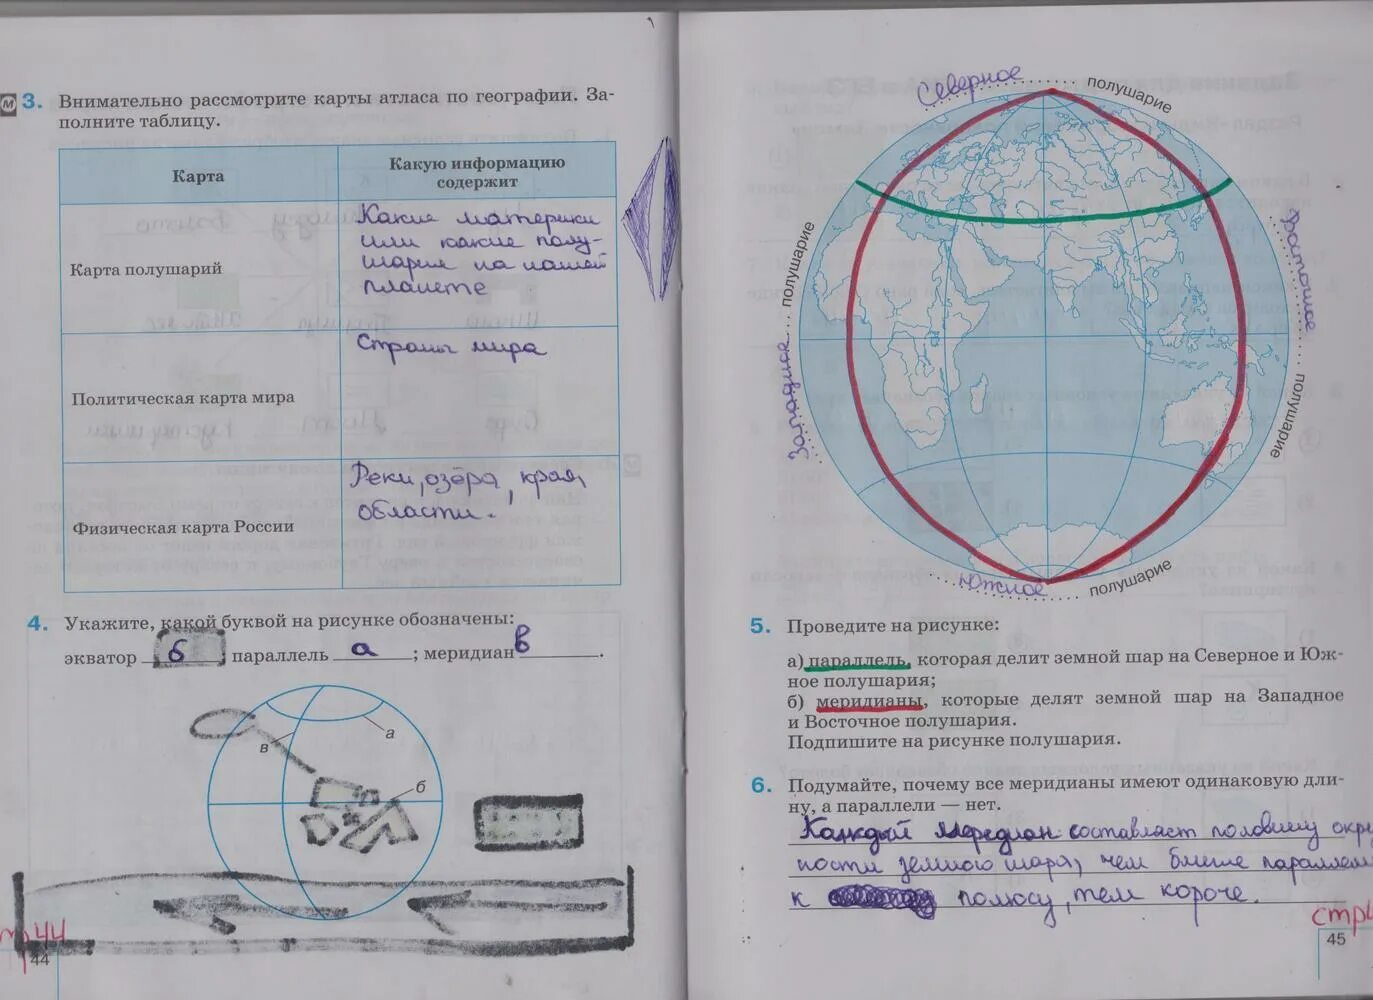 3. Внимательно рассмотрите карты атласа по географии. За-
полните таблицу.
Карта
Какую информацию
содержит
Карта полушарий
Какие материки
или какие полу-
шария на нашей
планете
Политическая карта мира
Страны мира
Физическая карта России
Реки, озёра, края,
области.
4. Укажите, какой буквой на рисунке обозначены:
экватор б; параллель а; меридиан в.
а
в
б
стр 44
44
Северное полушарие
Западное полушарие
Восточное полушарие
Южное полушарие
5. Проведите на рисунке:
а) параллель, которая делит земной шар на Северное и Юж-
ное полушария;
б) меридианы, которые делят земной шар на Западное
и Восточное полушария.
Подпишите на рисунке полушария.
6. Подумайте, почему все меридианы имеют одинаковую дли-
ну, а параллели — нет.
Каждый меридиан составляет половину окру
ности земного шара, чем ближе параллель
к полюсу, тем короче.
стр 4
45